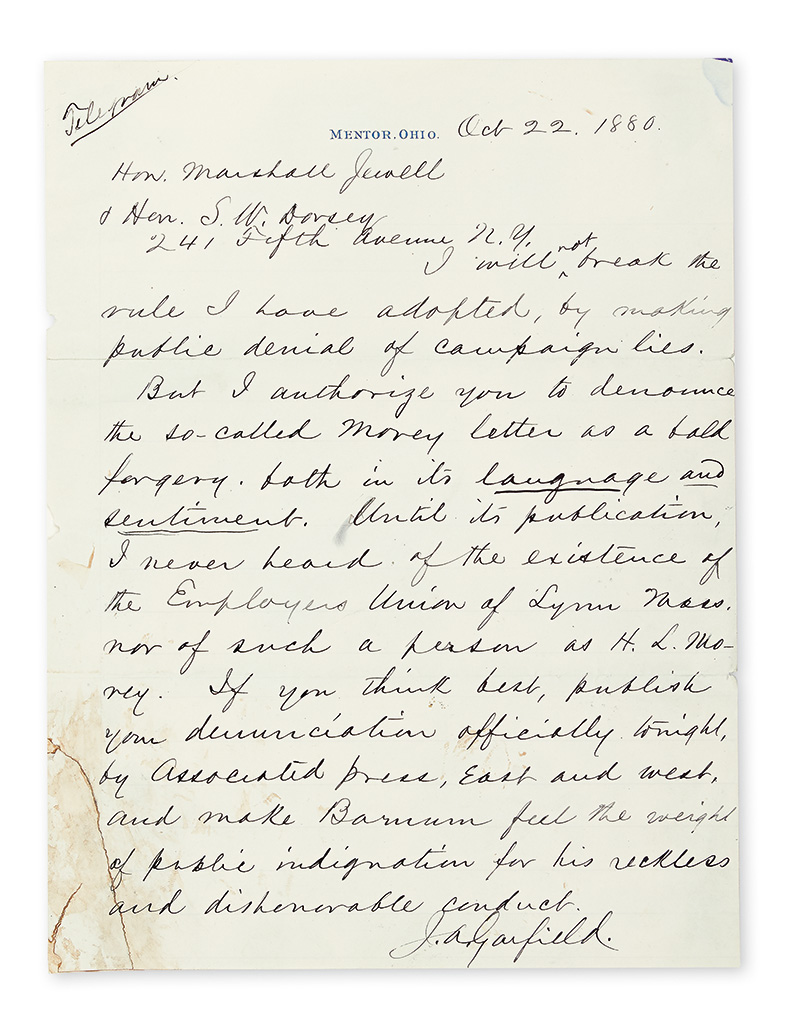 Telegram.
MENTOR, OHIO. Oct 22. 1880.
Hon. Marshall Jewell
& Hon. S. W. Dorsey
241 Fifth Avenue N.Y.
I will not break the
rule I have adopted, by making
public denial of campaign lies.
But I authorize you to denounce
the so-called Morey letter as a bald
forgery. both in its language and
sentiment. Until its publication,
I never heard of the existence of
the Employers Union of Lynn Mass.
nor of such a person as H. L. Mo-
rey. If you think best, publish
your denunciation officially tonight,
by Associated press, East and west,
and make Barnum feel the weight
of public indignation for his reckless
and dishonorable conduct.
J. A. Garfield.